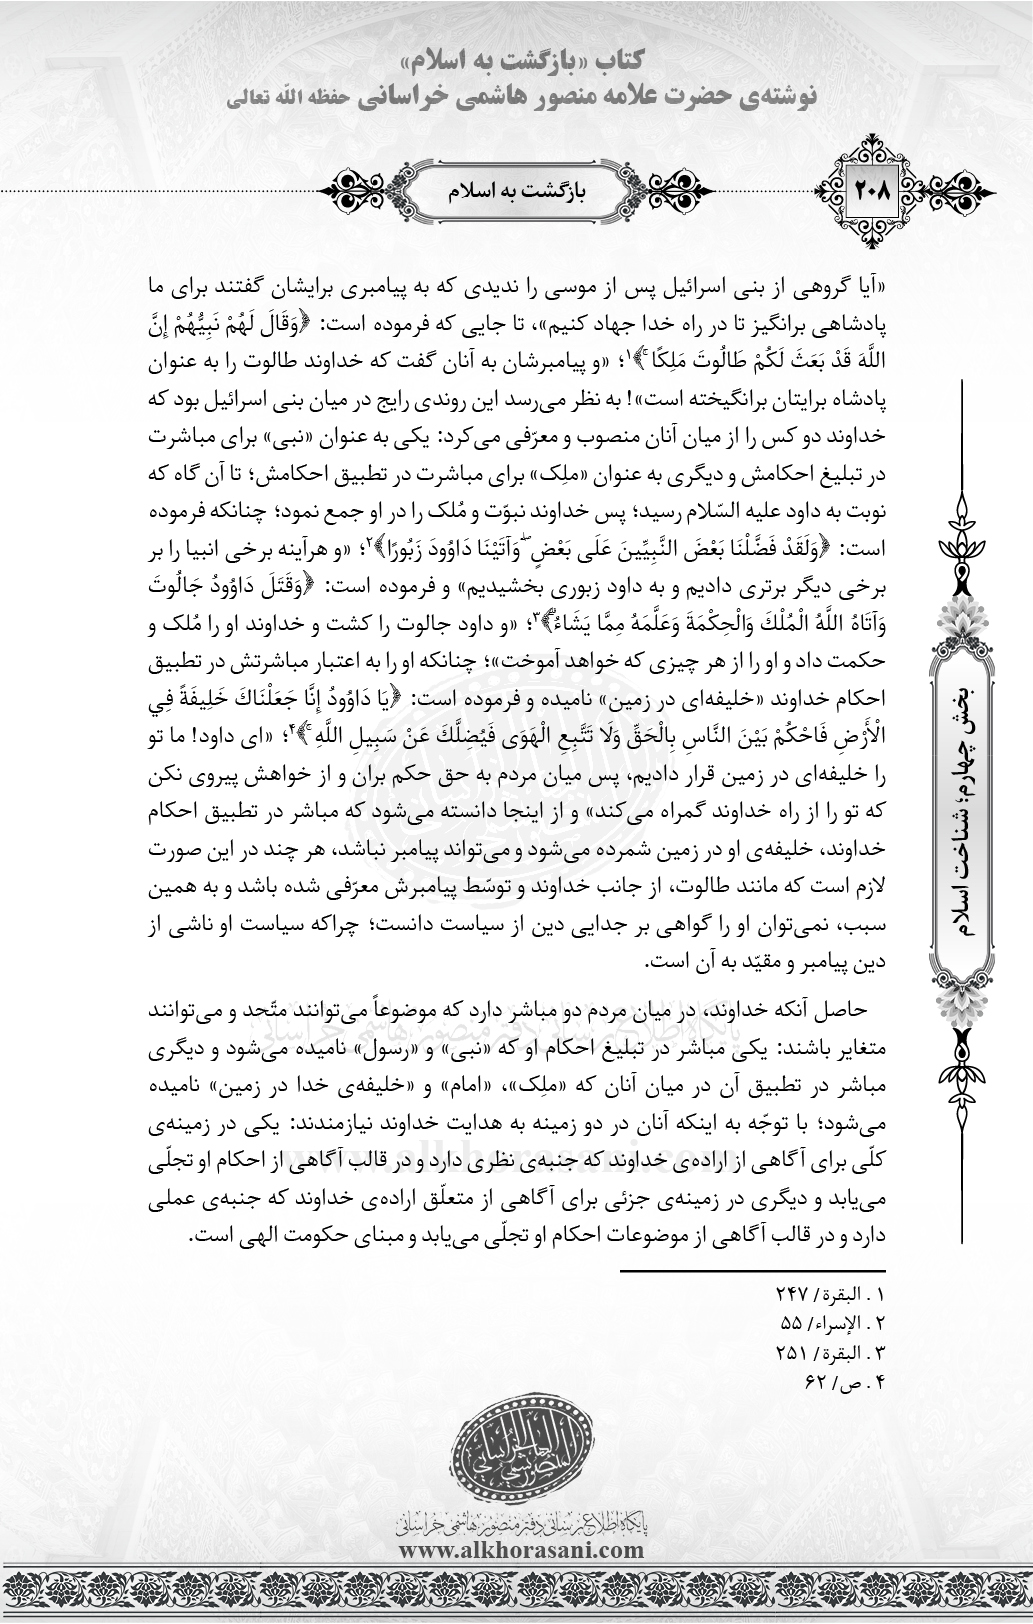 کتاب «بازگشت به اسلام»
نوشته‌ی حضرت علامه منصور هاشمی خراسانی حفظه اللّه تعالی
۲۰۸
بازگشت به اسلام
«آیا گروهی از بنی اسرائیل پس از موسی را ندیدی که به پیامبری برایشان گفتند برای ما
پادشاهی برانگیز تا در راه خدا جهاد کنیم»، تا جایی که فرموده است: ﴿وَقَالَ لَهُمْ نَبِيُّهُمْ إِنَّ
اللَّهَ قَدْ بَعَثَ لَكُمْ طَالُوتَ مَلِكًا ۚ﴾۱؛ «و پیامبرشان به آنان گفت که خداوند طالوت را به عنوان
پادشاه برایتان برانگیخته است»! به نظر می‌رسد این روندی رایج در میان بنی اسرائیل بود که
خداوند دو کس را از میان آنان منصوب و معرّفی می‌کرد: یکی به عنوان «نبی» برای مباشرت
در تبلیغ احکامش و دیگری به عنوان «ملِک» برای مباشرت در تطبیق احکامش؛ تا آن گاه که
نوبت به داود علیه السّلام رسید؛ پس خداوند نبوّت و مُلک را در او جمع نمود؛ چنانکه فرموده
است: ﴿وَلَقَدْ فَضَّلْنَا بَعْضَ النَّبِيِّينَ عَلَى بَعْضٍ ۖ وَآتَيْنَا دَاوُودَ زَبُورًا﴾۲؛ «و هرآینه برخی انبیا را بر
برخی دیگر برتری دادیم و به داود زبوری بخشیدیم» و فرموده است: ﴿وَقَتَلَ دَاوُودُ جَالُوتَ
وَآتَاهُ اللَّهُ الْمُلْكَ وَالْحِكْمَةَ وَعَلَّمَهُ مِمَّا يَشَاءُ ۗ﴾۳؛ «و داود جالوت را کشت و خداوند او را مُلک و
حکمت داد و او را از هر چیزی که خواهد آموخت»؛ چنانکه او را به اعتبار مباشرتش در تطبیق
احکام خداوند «خلیفه‌ای در زمین» نامیده و فرموده است: ﴿يَا دَاوُودُ إِنَّا جَعَلْنَاكَ خَلِيفَةً فِي
الْأَرْضِ فَاحْكُمْ بَيْنَ النَّاسِ بِالْحَقِّ وَلَا تَتَّبِعِ الْهَوَى فَيُضِلَّكَ عَنْ سَبِيلِ اللَّهِ ۚ﴾۴؛ «ای داود! ما تو
را خلیفه‌ای در زمین قرار دادیم، پس میان مردم به حق حکم بران و از خواهش پیروی نکن
که تو را از راه خداوند گمراه می‌کند» و از اینجا دانسته می‌شود که مباشر در تطبیق احکام
خداوند، خلیفه‌ی او در زمین شمرده می‌شود و می‌تواند پیامبر نباشد، هر چند در این صورت
لازم است که مانند طالوت، از جانب خداوند و توسّط پیامبرش معرّفی شده باشد و به همین
سبب، نمی‌توان او را گواهی بر جدایی دین از سیاست دانست؛ چراکه سیاست او ناشی از
دین پیامبر و مقیّد به آن است.
حاصل آنکه خداوند، در میان مردم دو مباشر دارد که موضوعاً می‌توانند متّحد و می‌توانند
متغایر باشند: یکی مباشر در تبلیغ احکام او که «نبی» و «رسول» نامیده می‌شود و دیگری
مباشر در تطبیق آن در میان آنان که «ملِک»، «امام» و «خلیفه‌ی خدا در زمین» نامیده
می‌شود؛ با توجّه به اینکه آنان در دو زمینه به هدایت خداوند نیازمندند: یکی در زمینه‌ی
کلّی برای آگاهی از اراده‌ی خداوند که جنبه‌ی نظری دارد و در قالب آگاهی از احکام او تجلّی
می‌یابد و دیگری در زمینه‌ی جزئی برای آگاهی از متعلّق اراده‌ی خداوند که جنبه‌ی عملی
دارد و در قالب آگاهی از موضوعات احکام او تجلّی می‌یابد و مبنای حکومت الهی است.
۱ . البقرة/ ۲۴۷
۲ . الإسراء/ ۵۵
۳ . البقرة/ ۲۵۱
۴ . ص/ ۶۲
بخش چهارم؛ شناخت اسلام
پایگاه اطلاع‌رسانی دفتر منصور هاشمی خراسانی
www.alkhorasani.com
المنصور الهاشمي الخراساني
پایگاه اطلاع‌رسانی دفتر منصور هاشمی خراسانی
www.alkhorasani.com